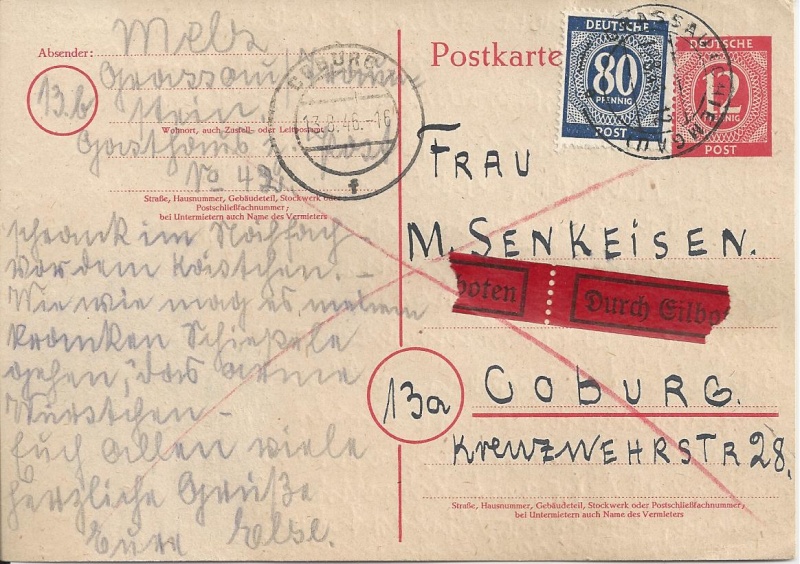 Absender: Melz
Grassau, Traun-
13b
stein.
Wohnort, auch Zustell- oder Leitpostamt
Gasthaus z. Post
No 42.
Straße, Hausnummer, Gebäudeteil, Stockwerk oder
Postschließfachnummer;
bei Untermietern auch Name des Vermieters
schrank im Nähfach
vor dem Kästchen. –
Wie wie mag es meinem
kranken Schiekele
gehen, das arme
Würstchen –
Euch allen viele
herzliche Grüße
Eure Else.
COBURG
13.8.46.-16
f
Postkarte
DEUTSCHE
80
PFENNIG
POST
DEUTSCHE
12
PFENNIG
POST
GRASSAU (CHIEMGAU)
FRAU
M. SENKEISEN.
boten
Durch Eilbo
13a
COBURG.
KREUZWEHRSTR 28.
Straße, Hausnummer, Gebäudeteil, Stockwerk oder Postschließfachnummer,
bei Untermietern auch Name des Vermieters